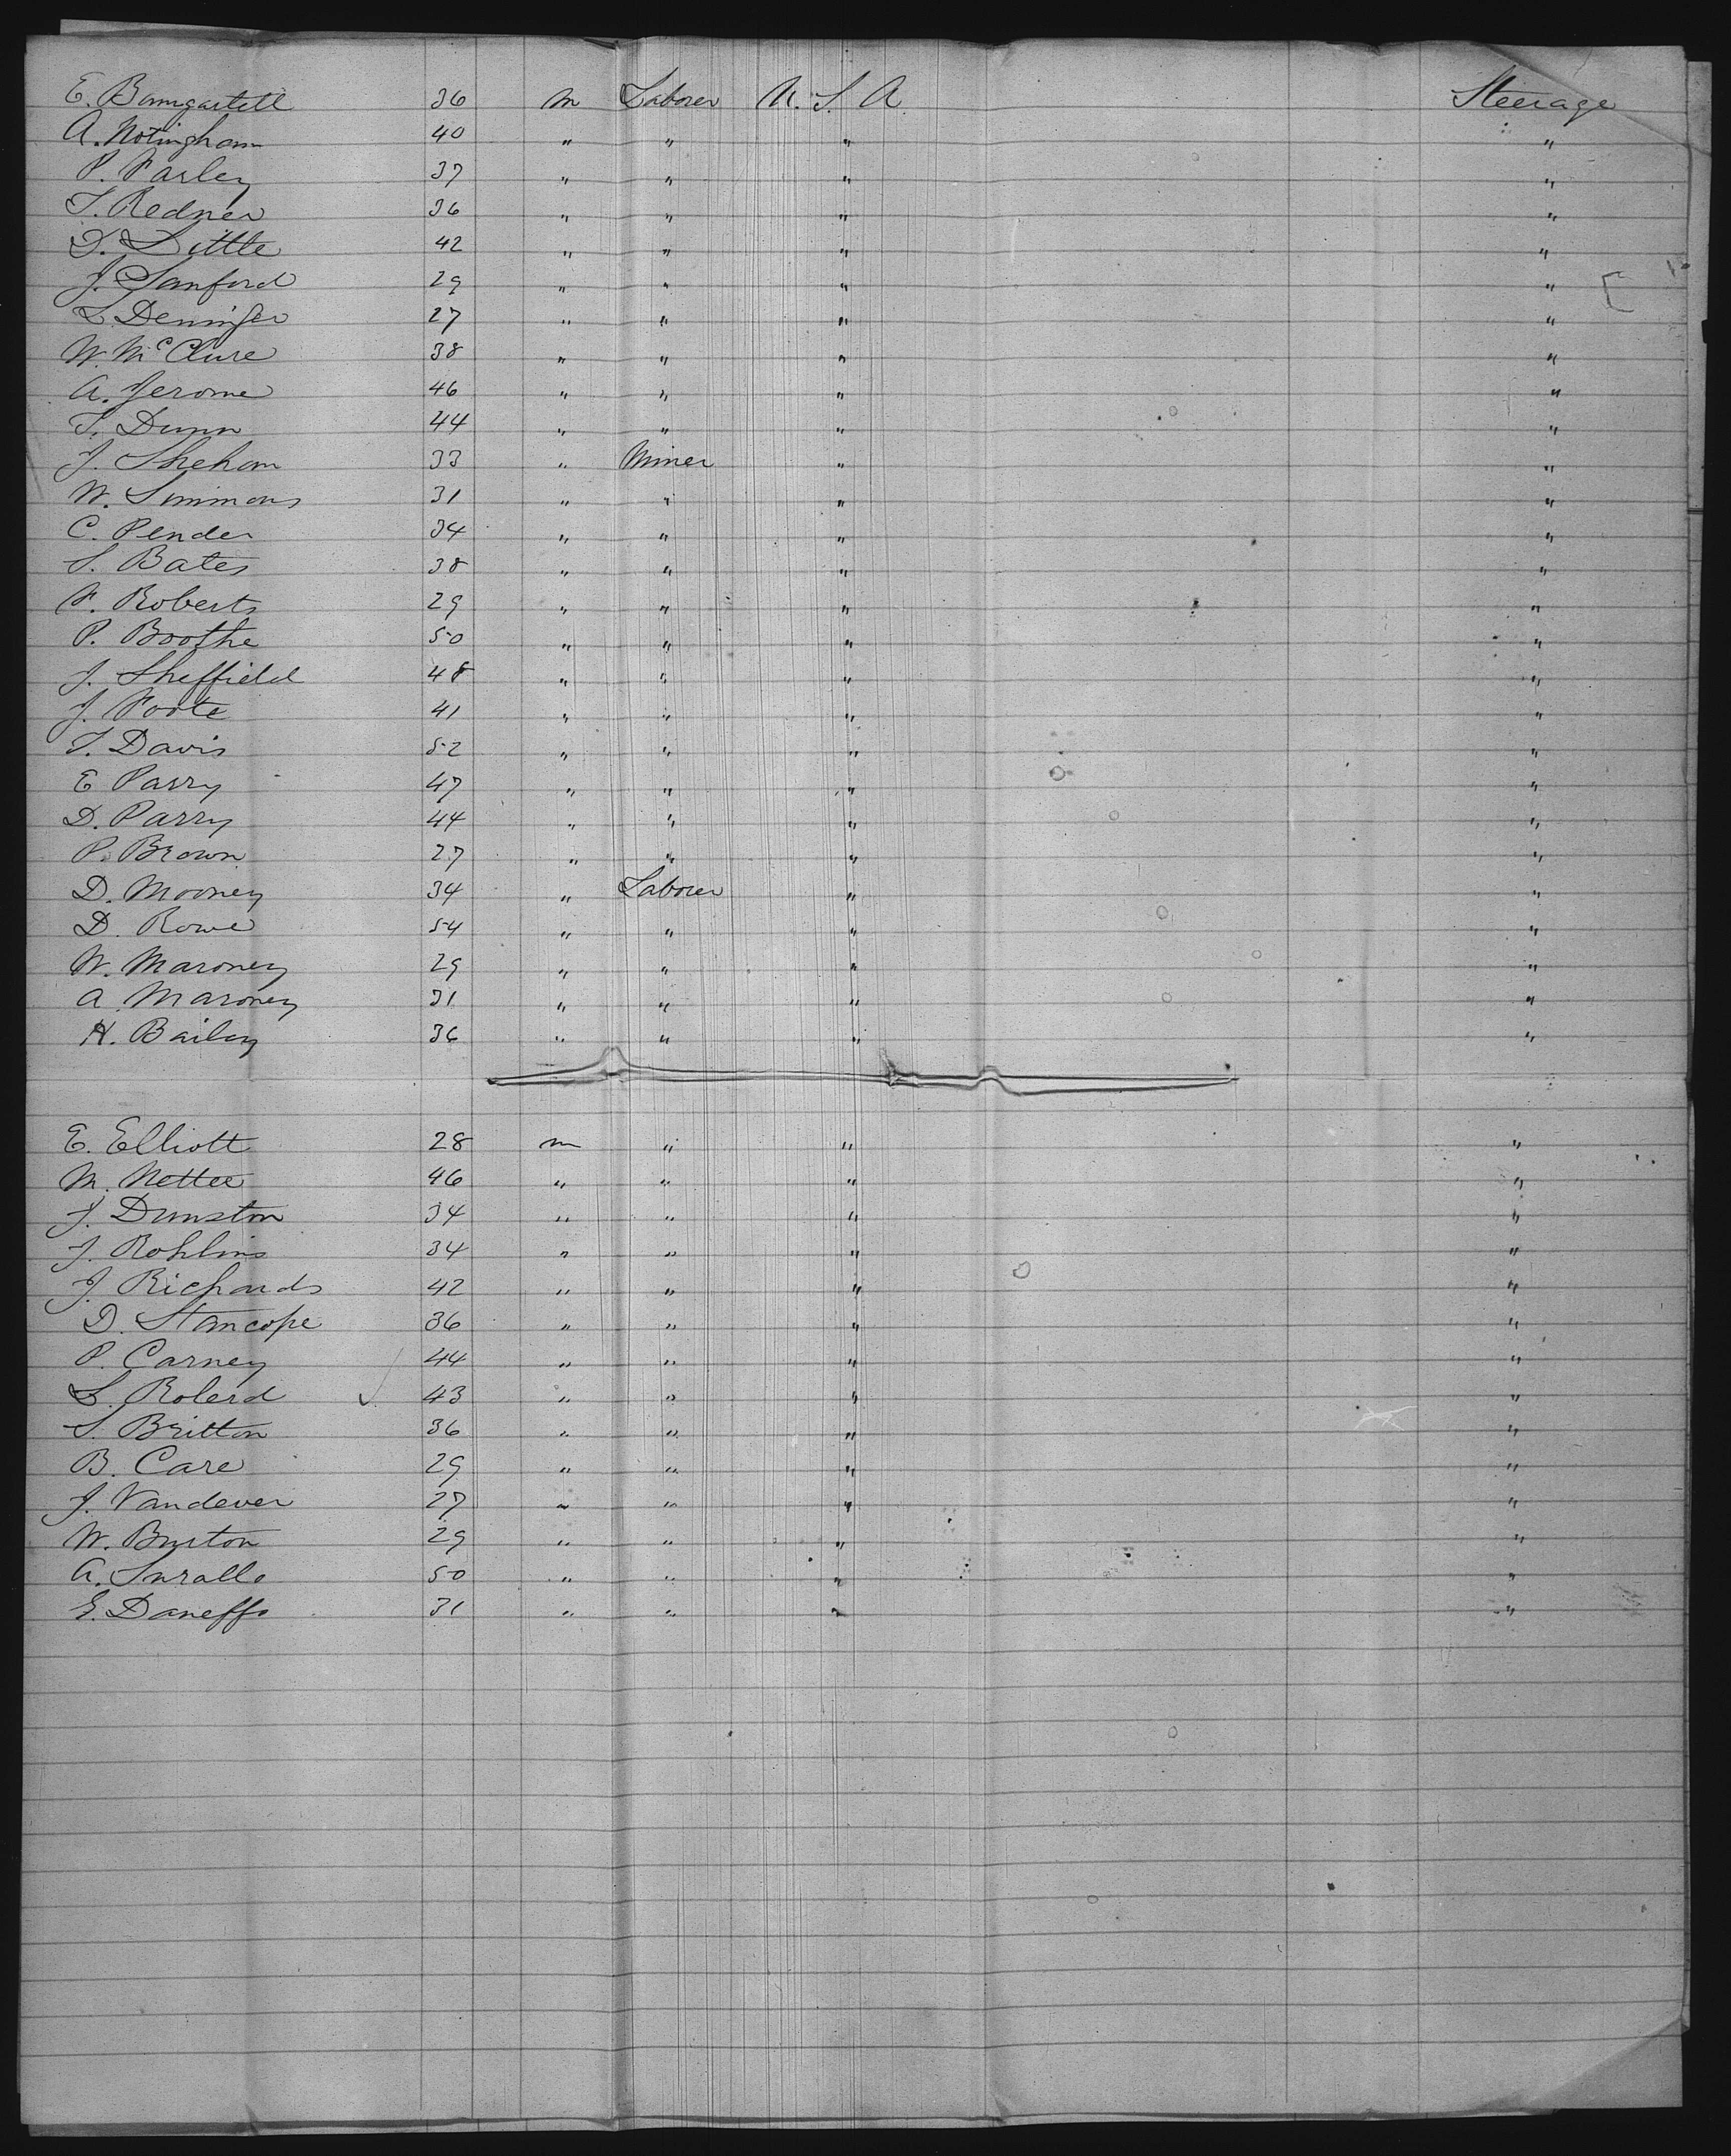 E. Bamgartell 36 m Laborer U. S. A. Steerage
A. Notingham 40 " " " "
P. Farley 37 " " " "
T. Redner 36 " " " "
D. Little 42 " " " "
J. Sanford 29 " " " "
L. 27 " " " "
W. McClure 38 " " " "
A. Jerome 46 " " " "
T. Dunn 44 " " " "
J. Shehan 33 " Miner " "
W. Simmons 31 " " " "
C. Pender 34 " " " "
S. Bates 38 " " " "
F. Roberts 29 " " " "
P. Boothe 50 " " " "
J. Sheffield 48 " " " "
J. Foote 41 " " " "
T. Davis 52 " " " "
E Parry 47 " " " "
D. Parry 44 " " " "
P. Brown 27 " " " "
D. Mooney 34 " Laborer " "
D. Rowe 54 " " " "
W. Maroney 29 " " " "
A. Maroney 31 " " " "
H. Bailey 36 " " " "
E. Elliott 28 m " " "
M. Nettee 46 " " " "
J. Dunston 34 " " " "
J. Rohlins 34 " " " "
J. Richards 42 " " " "
D. Stancope 36 " " " "
P. Carney 44 " " " "
L. Rolerd 43 " " " "
S. Britton 36 " " " "
B. Care 29 " " " "
J. Vandever 27 " " " "
W. Burton 29 " " " "
A. 50 " " " "
31 " " " "